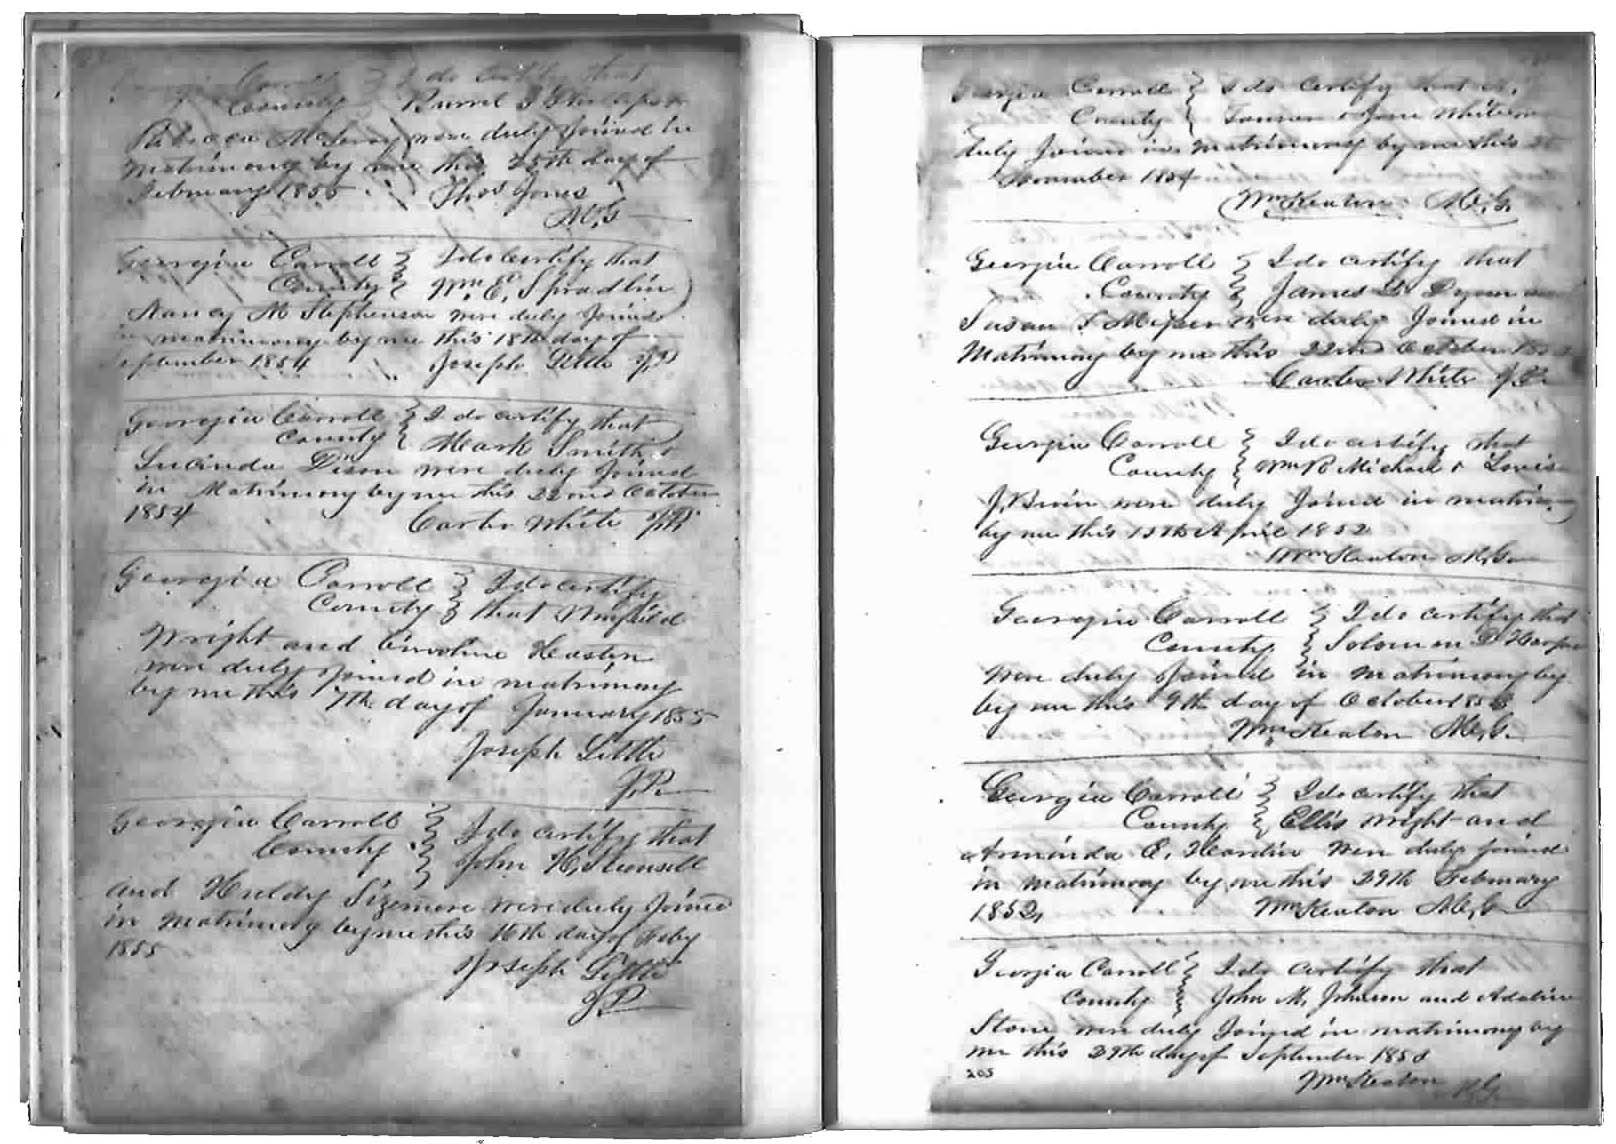 Carroll } I do certify that
County } Burrel J Phillips &
Rebecca McLeroy were duly Joined in
Matrimony by me this 25th day of
February 1855 Thos Jones
M,G
Georgia Carroll } I do Certify that
County } Wm E, Spradlin
Nancy M Stephenson were duly Joined
in matrimony by me this 18th day of
September 1854 Joseph Little J,P
Georgia Carroll } I do certify that
County } Mark Smith &
Lucinda were duly Joined
in Matrimony by me this 22nd October
1854 Carter White J,P.
Georgia Carroll } I do certify
County } that
Wright and Caroline
were duly Joined in matrimony
by me this 7th day of January 1855
Joseph Little
J,P.
Georgia Carroll } I do certify that
County } John H,
and Huldy Sizemore were duly Joined
in Matrimony by me this 16th day of Feby
1855
Joseph Little
J,P
Georgia Carroll } I do Certify that
County } & Jane
duly Joined in matrimony by me this
November 1854
Wm Keaton M,G,
Georgia Carroll } I do certify that
County } James
Susan were duly Joined in
Matrimony by me this 22nd October
Carter White J,P.
Georgia Carroll } I do certify that
County } Wm R Michael &
J, were duly Joined in
by me this 15th April 1852
Wm Keaton M,G
Georgia Carroll } I do certify that
County } Solomon
were duly Joined in matrimony by
by me this 9th day of October
Wm Keaton M,G.
Georgia Carroll } I do certify that
County } Ellis Wright and
E, were duly joined
in matrimony by me this 29th February
1852, Wm Keaton M,G
Georgia Carroll } I do certify that
County } John M, Johnson and Adaline
Stone were duly Joined in matrimony by
me this 29th day of September
205
Wm Keaton M,G.